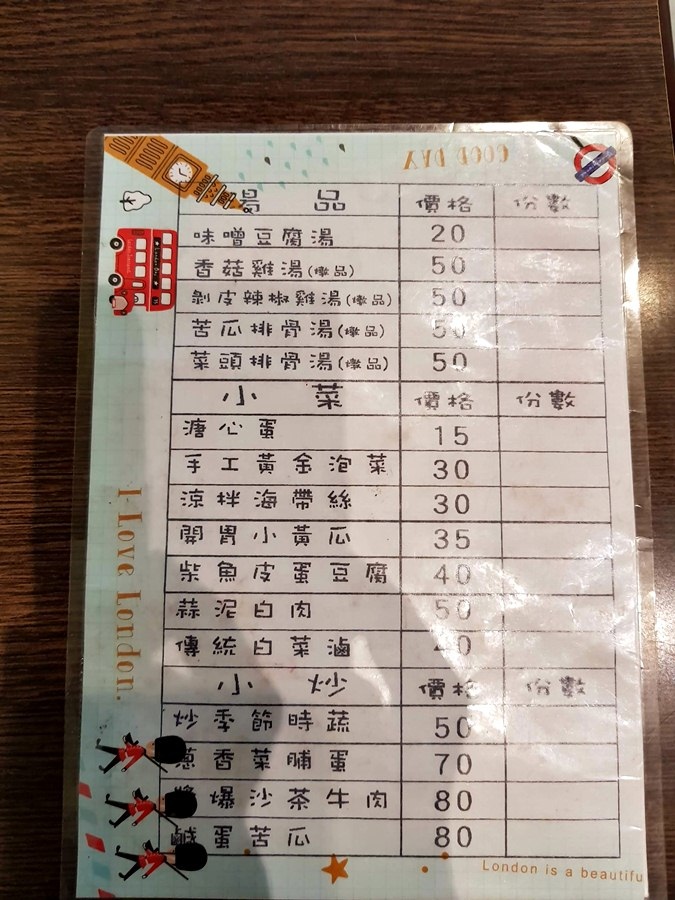 GOOD DAY
湯品 價格 份數
味噌豆腐湯 20
香菇雞湯(燉品) 50
剝皮辣椒雞湯(燉品) 50
苦瓜排骨湯(燉品) 50
菜頭排骨湯(燉品) 50
小菜 價格 份數
溏心蛋 15
手工黃金泡菜 30
涼拌海帶絲 30
開胃小黃瓜 35
柴魚皮蛋豆腐 40
蒜泥白肉 50
傳統白菜滷 40
小炒 價格 份數
炒季節時蔬 50
蔥香菜脯蛋 70
醬爆沙茶牛肉 80
鹹蛋苦瓜 80
I Love London.
London is a beautifu